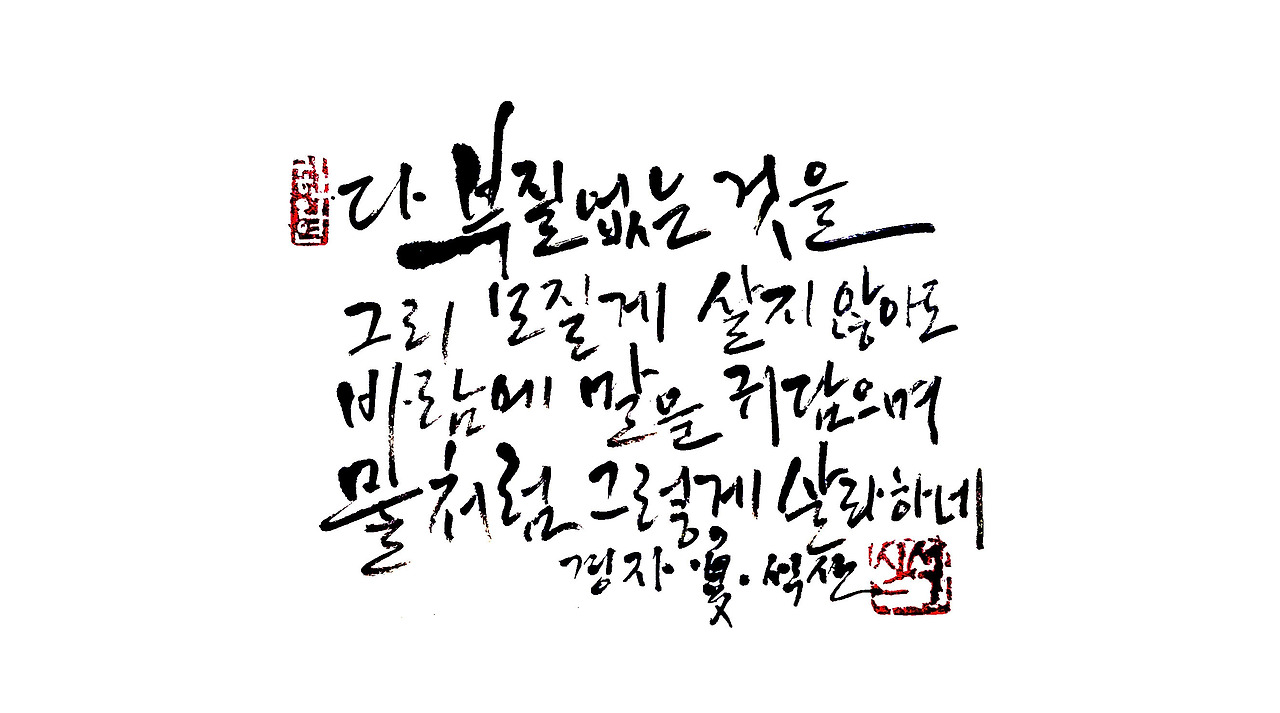 다 부질없는 것을
그리 모질게 살지 않아도
바람에 말을 귀담으며
물처럼 그렇게 살라하네
경자 夏·석전